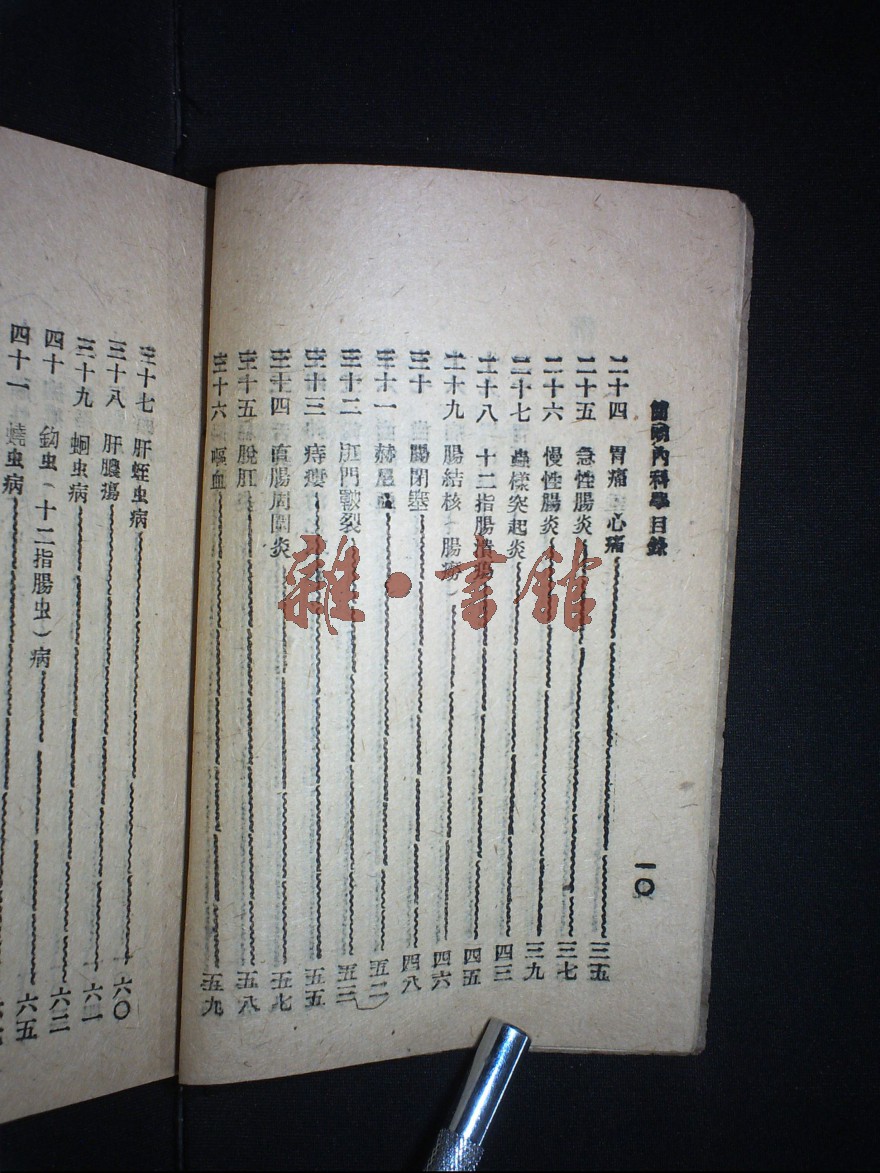 簡明內科學目錄
一〇
二十四 胃痛 心痛 三五
二十五 急性腸炎 三七
二十六 慢性腸炎 三九
二十七 蟲樣突起炎 四三
二十八 十二指腸潰瘍 四五
二十九 腸結核（腸癆） 四六
三十 腸閉塞 四八
三十一 赫尼亞 五二
三十二 肛門皸裂 五三
三十三 痔瘻 五五
三十四 直腸周圍炎 五七
三十五 脫肛 五八
三十六 嘔血 五九
三十七 肝蛭虫病 六〇
三十八 肝膿瘍 六一
三十九 蛔虫病 六二
四十 鈎虫（十二指腸虫）病 六五
四十一 蟯虫病
雜·書館